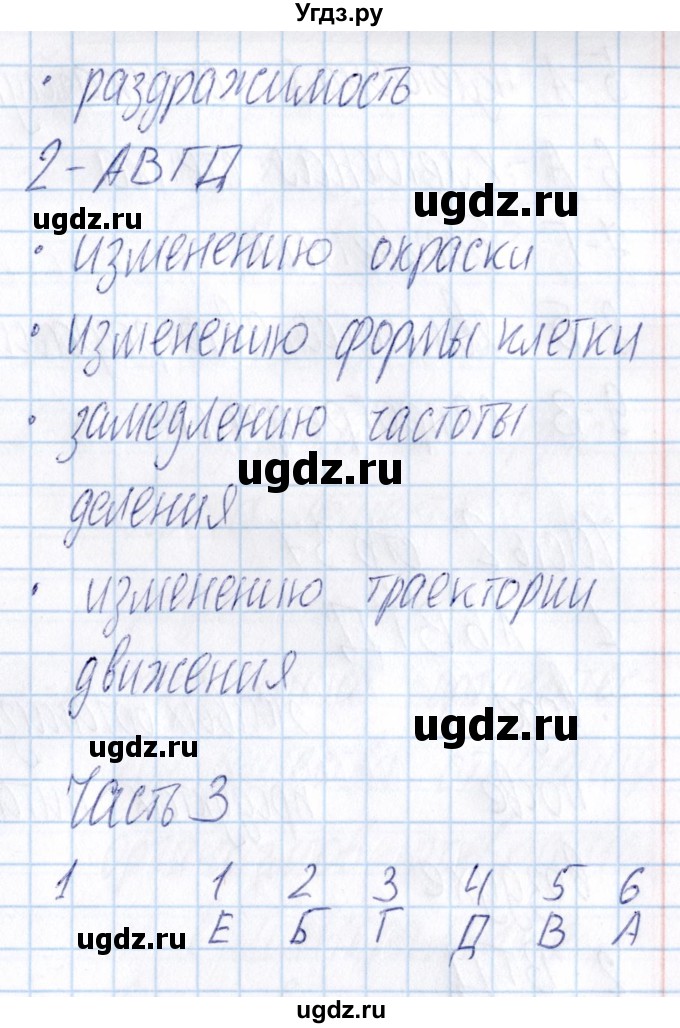 Угдз.ру
• раздражимость
2-АВГД
ugdz.ru ugdz.ru
• изменению окраски
• изменению формы клетки
• замедлению частоты
ugdz.ru
деления
• изменению траектории
движения
ugdz.ru
ugdz.ru
Часть 3
1 1 2 3 4 5 6
ugdz.ru Е Б Г Д В А
ugdz.ru